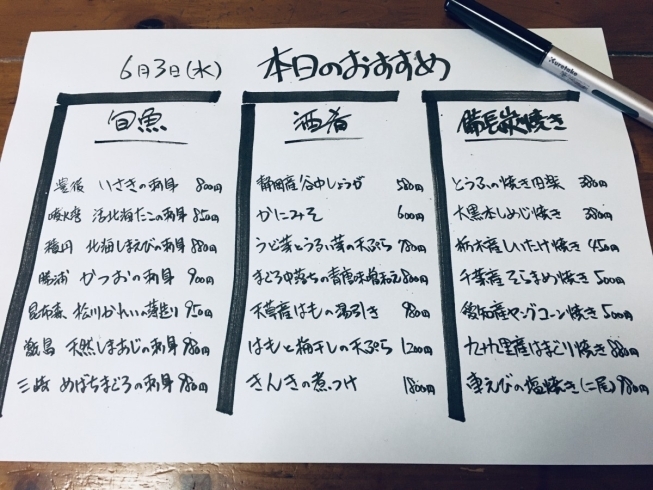 6月3日(水) 本日のおすすめ
旬魚
豊後 いさきの刺身 800円
活北海たこの刺身 850円
北海しまえびの刺身 880円
勝浦 かつおの刺身 900円
昆布森 松川かれいの薄造り 950円
甑島 天然しまあじの刺身 980円
三崎 めばちまぐろの刺身 980円
酒肴
静岡産谷中しょうが 580円
かにみそ 600円
うど芽とうるい芽の天ぷら 780円
まぐろ中落ちの青唐味噌和え 800円
天草産はもの湯引き 980円
はもと梅干しの天ぷら 1200円
きんきの煮つけ 1800円
備長炭焼き
とうふの焼き田楽 380円
大黒本しめじ焼き 380円
栃木産しいたけ焼き 450円
千葉産そらまめ焼き 500円
愛知産ヤングコーン焼き 500円
九十九里産はまぐり焼き 880円
車えびの塩焼き(二尾) 980円
Kuretake